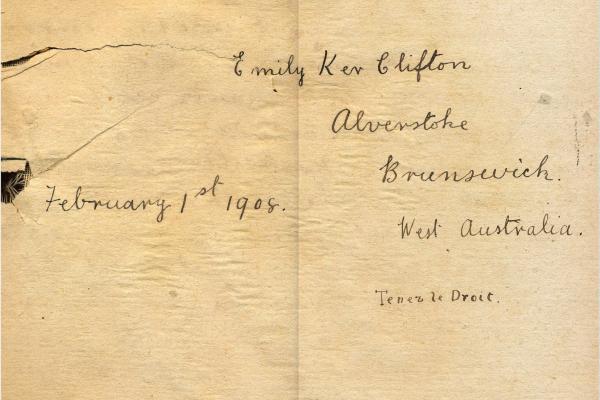 Emily Ker Clifton
Alverstoke
Brunswick.
February 1st 1908.
West Australia.
Tenez le Droit.